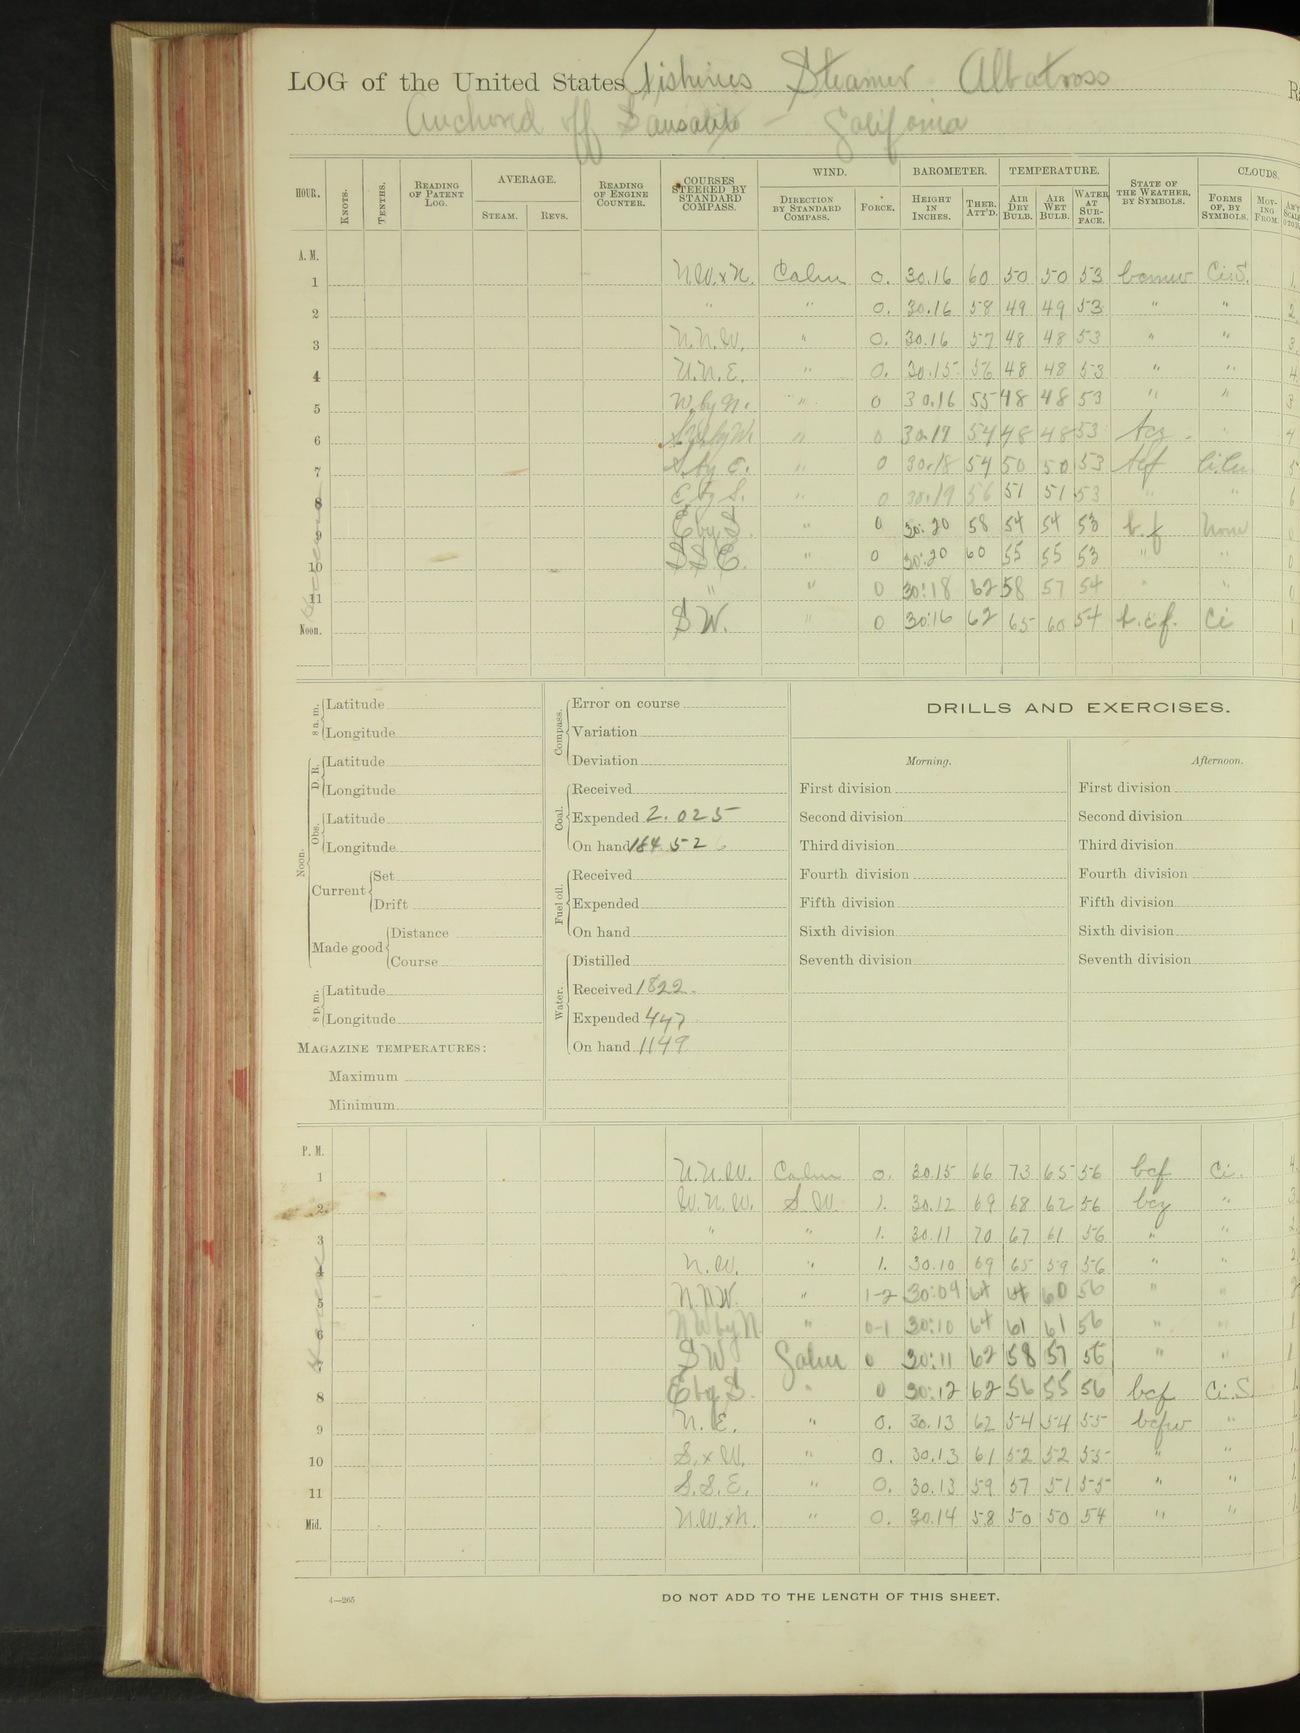 LOG of the United States Fisheries Steamer Albatross R
Anchored off Sausalito - California
HOUR. KNOTS. TENTHS. READING OF PATENT LOG. AVERAGE. STEAM. REVS. READING OF ENGINE COUNTER. COURSES STEERED BY STANDARD COMPASS. WIND. DIRECTION BY STANDARD COMPASS. FORCE. BAROMETER. HEIGHT IN INCHES. THER. ATT'D. TEMPERATURE. AIR DRY BULB. AIR WET BULB. WATER AT SUR-FACE. STATE OF THE WEATHER, BY SYMBOLS. CLOUDS. FORMS OF, BY SYMBOLS. MOV-ING FROM.
A. M.
1 N.W.xN. Calm 0. 30.16 60 50 50 53 bcmw Ci.S. 1.
2 " " 0. 30.16 58 49 49 53 " " 2.
3 N.N.W. " 0. 30.16 57 48 48 53 " " 3.
4 N.N.E. " 0. 30.15 56 48 48 53 " " 4
5 W. by N. " 0 30.16 55 48 48 53 " " 3
6 " 0 30.19 54 48 48 53 " 4
7 S. by E. " 0 30.18 54 50 50 53 bcf Ci.Cu. 5
8 E. by S. " 0 30.19 56 51 51 53 " " 6
9 E by S. " 0 30:20 58 54 54 53 b.f None 0
10 SSE. " 0 30:20 60 55 55 53 " " 0
11 " " 0 30:18 62 58 57 54 " " 0
Noon. SW. " 0 30:16 62 65 60 54 b.c.f. Ci 1
8 a. m. Latitude
Longitude
Noon. D. R. Latitude
Longitude
Obs. Latitude
Longitude
Current Set
Drift
Made good Distance
Course
8 p. m. Latitude
Longitude
MAGAZINE TEMPERATURES:
Maximum
Minimum
Compass. Error on course
Variation
Deviation
Coal. Received
Expended 2.025
On hand 184.526
Fuel oil. Received
Expended
On hand
Water. Distilled
Received 1822.
Expended 447
On hand 1149
DRILLS AND EXERCISES.
Morning. Afternoon.
First division First division
Second division Second division
Third division Third division
Fourth division Fourth division
Fifth division Fifth division
Sixth division Sixth division
Seventh division Seventh division
P. M.
1 N.N.W. Calm 0. 30.15 66 73 65 56 bcf Ci. 4.
2 W.N.W. S.W. 1. 30.12 69 68 62 56 bcz " 3.
3 " " 1. 30.11 70 67 61 56 " " 2.
4 N.W. " 1. 30.10 69 65 59 56 " " 2.
5 NNW. " 1-2 30:09 64 64 60 56 " " 2
6 NW by N " 0-1 30:10 64 61 61 56 " " 1
7 SW Calm 0 30:11 62 58 57 56 " " 1
8 E by S. " 0 30:12 62 56 55 56 bcf Ci.S 1.
9 N.E. " 0. 30.13 62 54 54 55 bcfw " 1
10 S.xW. " 0. 30.13 61 52 52 55 " " 1.
11 S.S.E. " 0. 30.13 59 51 51 55 " " 1.
Mid. N.W.xN. " 0. 30.14 58 50 50 54 " " 1.
4—265
DO NOT ADD TO THE LENGTH OF THIS SHEET.